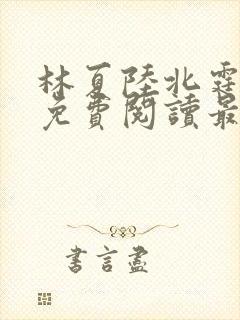 林夏陸北霆
免費閱讀最
書言盡